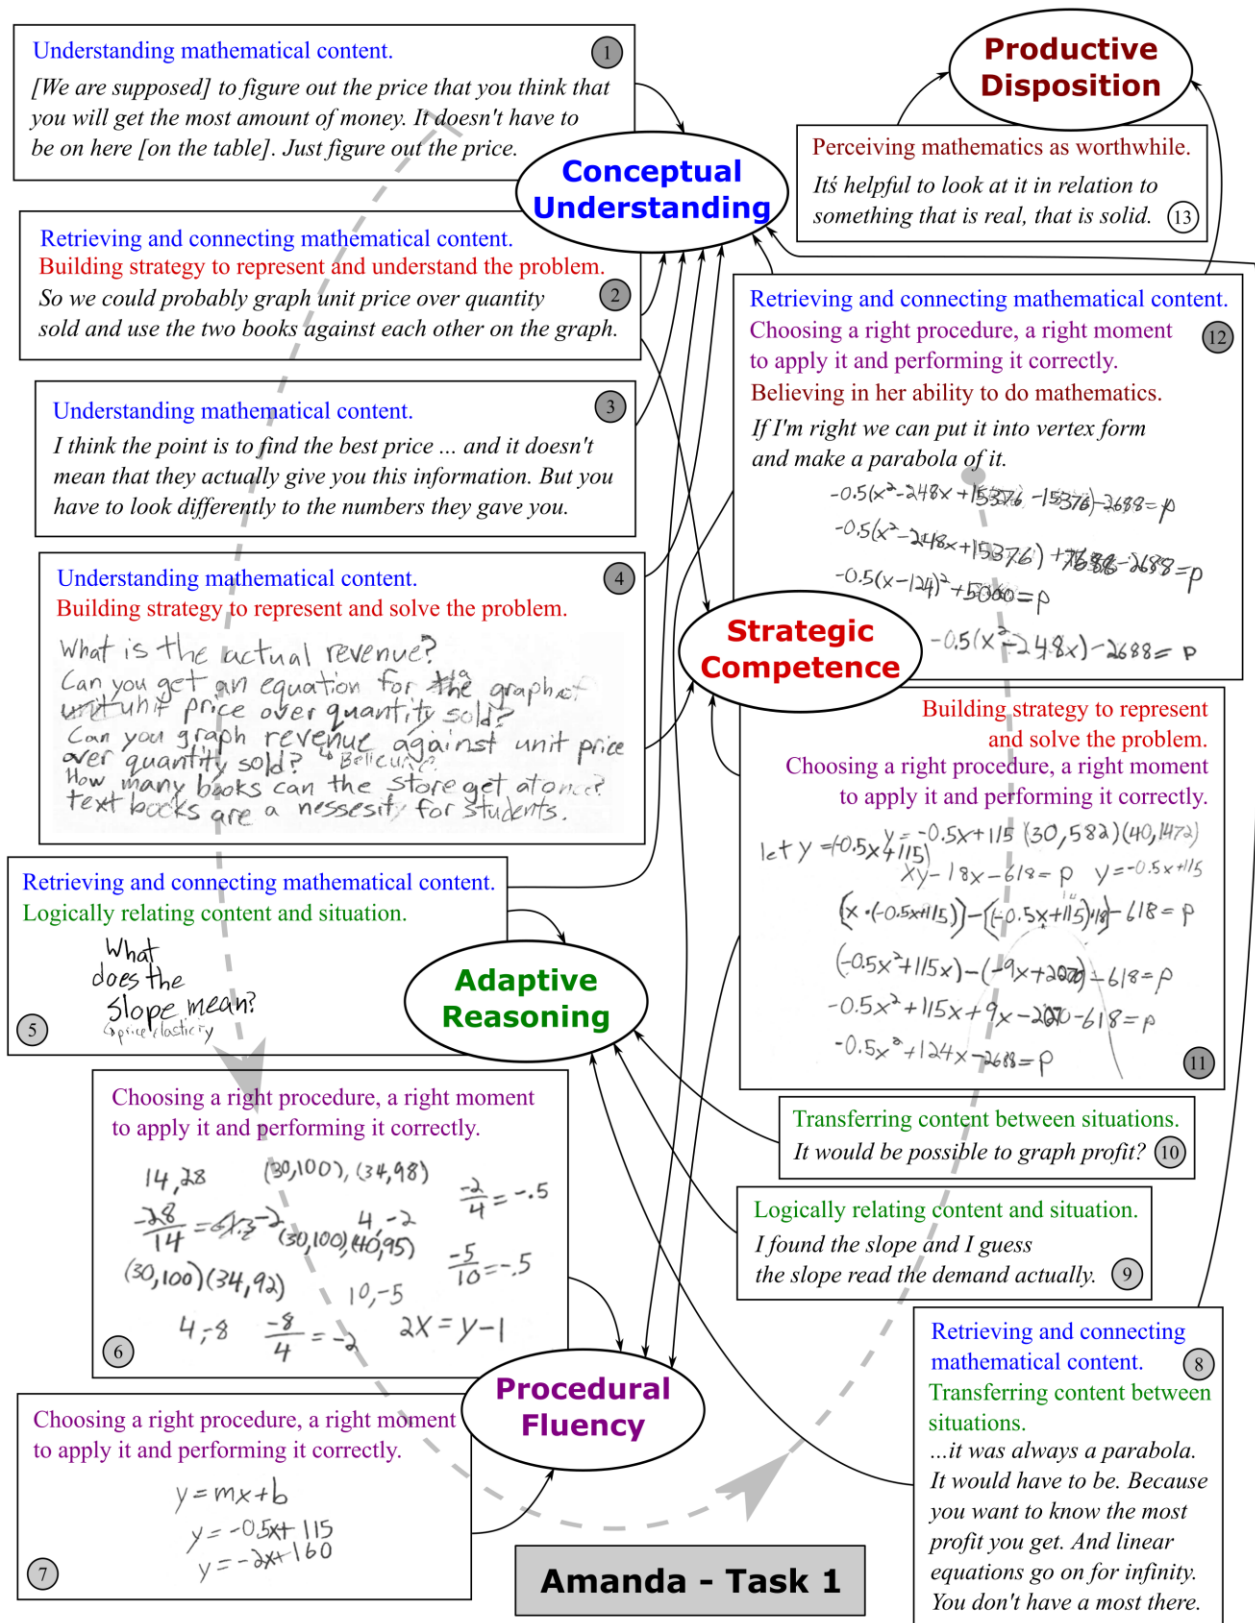 Understanding mathematical content.
1
[We are supposed] to figure out the price that you think that
you will get the most amount of money. It doesn't have to
be on here [on the table]. Just figure out the price.
Productive
Disposition
Conceptual
Understanding
Perceiving mathematics as worthwhile.
Itś helpful to look at it in relation to
something that is real, that is solid.
13
Retrieving and connecting mathematical content.
Building strategy to represent and understand the problem.
2
So we could probably graph unit price over quantity
sold and use the two books against each other on the graph.
Understanding mathematical content.
3
I think the point is to find the best price ... and it doesn't
mean that they actually give you this information. But you
have to look differently to the numbers they gave you.
Understanding mathematical content.
4
Building strategy to represent and solve the problem.
What is the actual revenue?
Can you get an equation for the graph of
unit price over quantity sold?
Can you graph revenue against unit price
over quantity sold?
How many books can the store get at once?
text books are a nessesity for students.
Retrieving and connecting mathematical content.
Logically relating content and situation.
What
does the
slope mean?
↳price elasticity
5
Adaptive
Reasoning
Choosing a right procedure, a right moment
to apply it and performing it correctly.
14,28 (30,100), (34,98)
-2/4 = -.5
-28/14 = -2 4,-2
(30,100)(40,95)
-5/10 = -.5
(30,100)(34,92)
10,-5
4,-8 -8/4 = -2 2x = y-1
6
Procedural
Fluency
Choosing a right procedure, a right moment
to apply it and performing it correctly.
y = mx+b
y = -0.5x+115
y = -2x+160
7
Retrieving and connecting mathematical content.
Choosing a right procedure, a right moment
to apply it and performing it correctly.
12
Believing in her ability to do mathematics.
If I'm right we can put it into vertex form
and make a parabola of it.
-0.5(x²-248x+15376-15376)-2688=p
-0.5(x²-248x+15376)+7688-2688=p
-0.5(x-124)²+5000=p
-0.5(x²-248x)-2688=p
Strategic
Competence
Building strategy to represent
and solve the problem.
Choosing a right procedure, a right moment
to apply it and performing it correctly.
y=-0.5x+115 (30,582)(40,1472)
let y=(-0.5x+115)
xy-18x-618=p y=-0.5x+115
(x·(-0.5x+115))-((-0.5x+115)18)-618=p
(-0.5x²+115x)-(-9x+2070)-618=p
-0.5x²+115x+9x-2070-618=p
-0.5x²+124x-2688=p
11
Transferring content between situations.
It would be possible to graph profit?
10
Logically relating content and situation.
I found the slope and I guess
the slope read the demand actually.
9
Retrieving and connecting
mathematical content.
8
Transferring content between
situations.
...it was always a parabola.
It would have to be. Because
you want to know the most
profit you get. And linear
equations go on for infinity.
You don't have a most there.
Amanda - Task 1